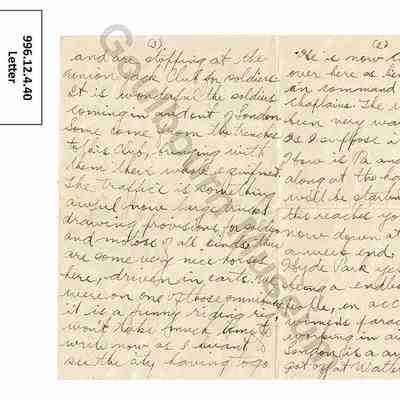 996.12.4.40
Letter
(1)
and are stopping at the
union Jack Club for soldiers
It is wonderful the soldiers
coming in and out of London
Some come from the trenches
to this Club, bringing with
them their whole equipment.
The traffic is something
awful now large trucks
drawing provisions, for
and motors of all kinds there
are some very nice horses
here, driven in carts. We
were on one of those
it is a funny riding rig,
won't take much time to
write now as I want to
see the city having to go
(2)
He is now
over here as
in command
chaplains. The
been very wa
as I suppose i
How is Pa and
along at the ho
will be startin
this reaches yo
now down at
a week end
Hyde Park ye
being a endles
people, on acc
womens parad
working in
London is a
got off at Wat